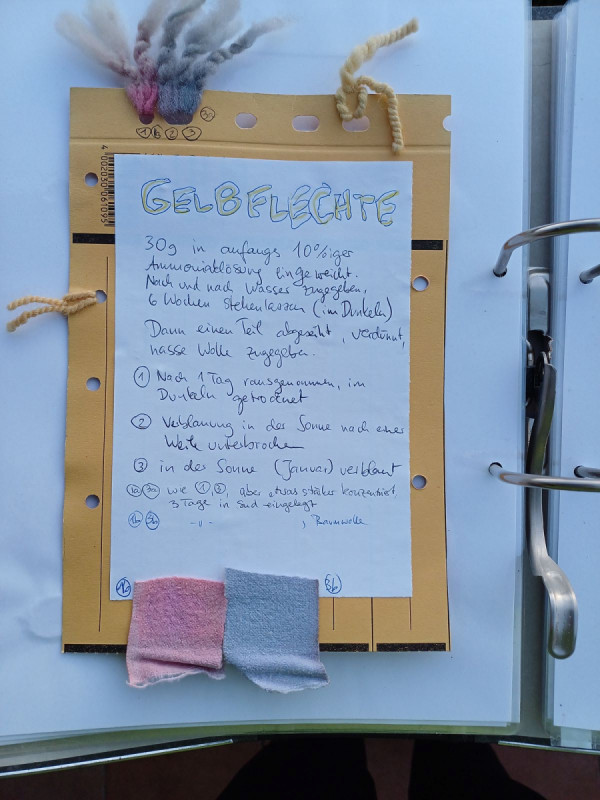 3a
1 1a 2 3
4 002030 061095
GELBFLECHTE
30g in anfangs 10%iger
Ammoniaklösung eingeweicht.
Nach und nach Wasser zugegeben,
6 Wochen stehenlassen (im Dunkeln)
Dann einen Teil abgeseiht, verdünnt,
nasse Wolle zugegeben.
1 Nach 1 Tag rausgenommen, im
Dunkeln getrocknet
2 Verblauung in der Sonne nach einer
Weile unterbrochen
3 in der Sonne (Januar) verblaut
1a 3a wie 1, 3, aber etwas stärker konzentriert,
3 Tage in Sud eingelegt
1b 3b -"- , Baumwolle
1b 3b